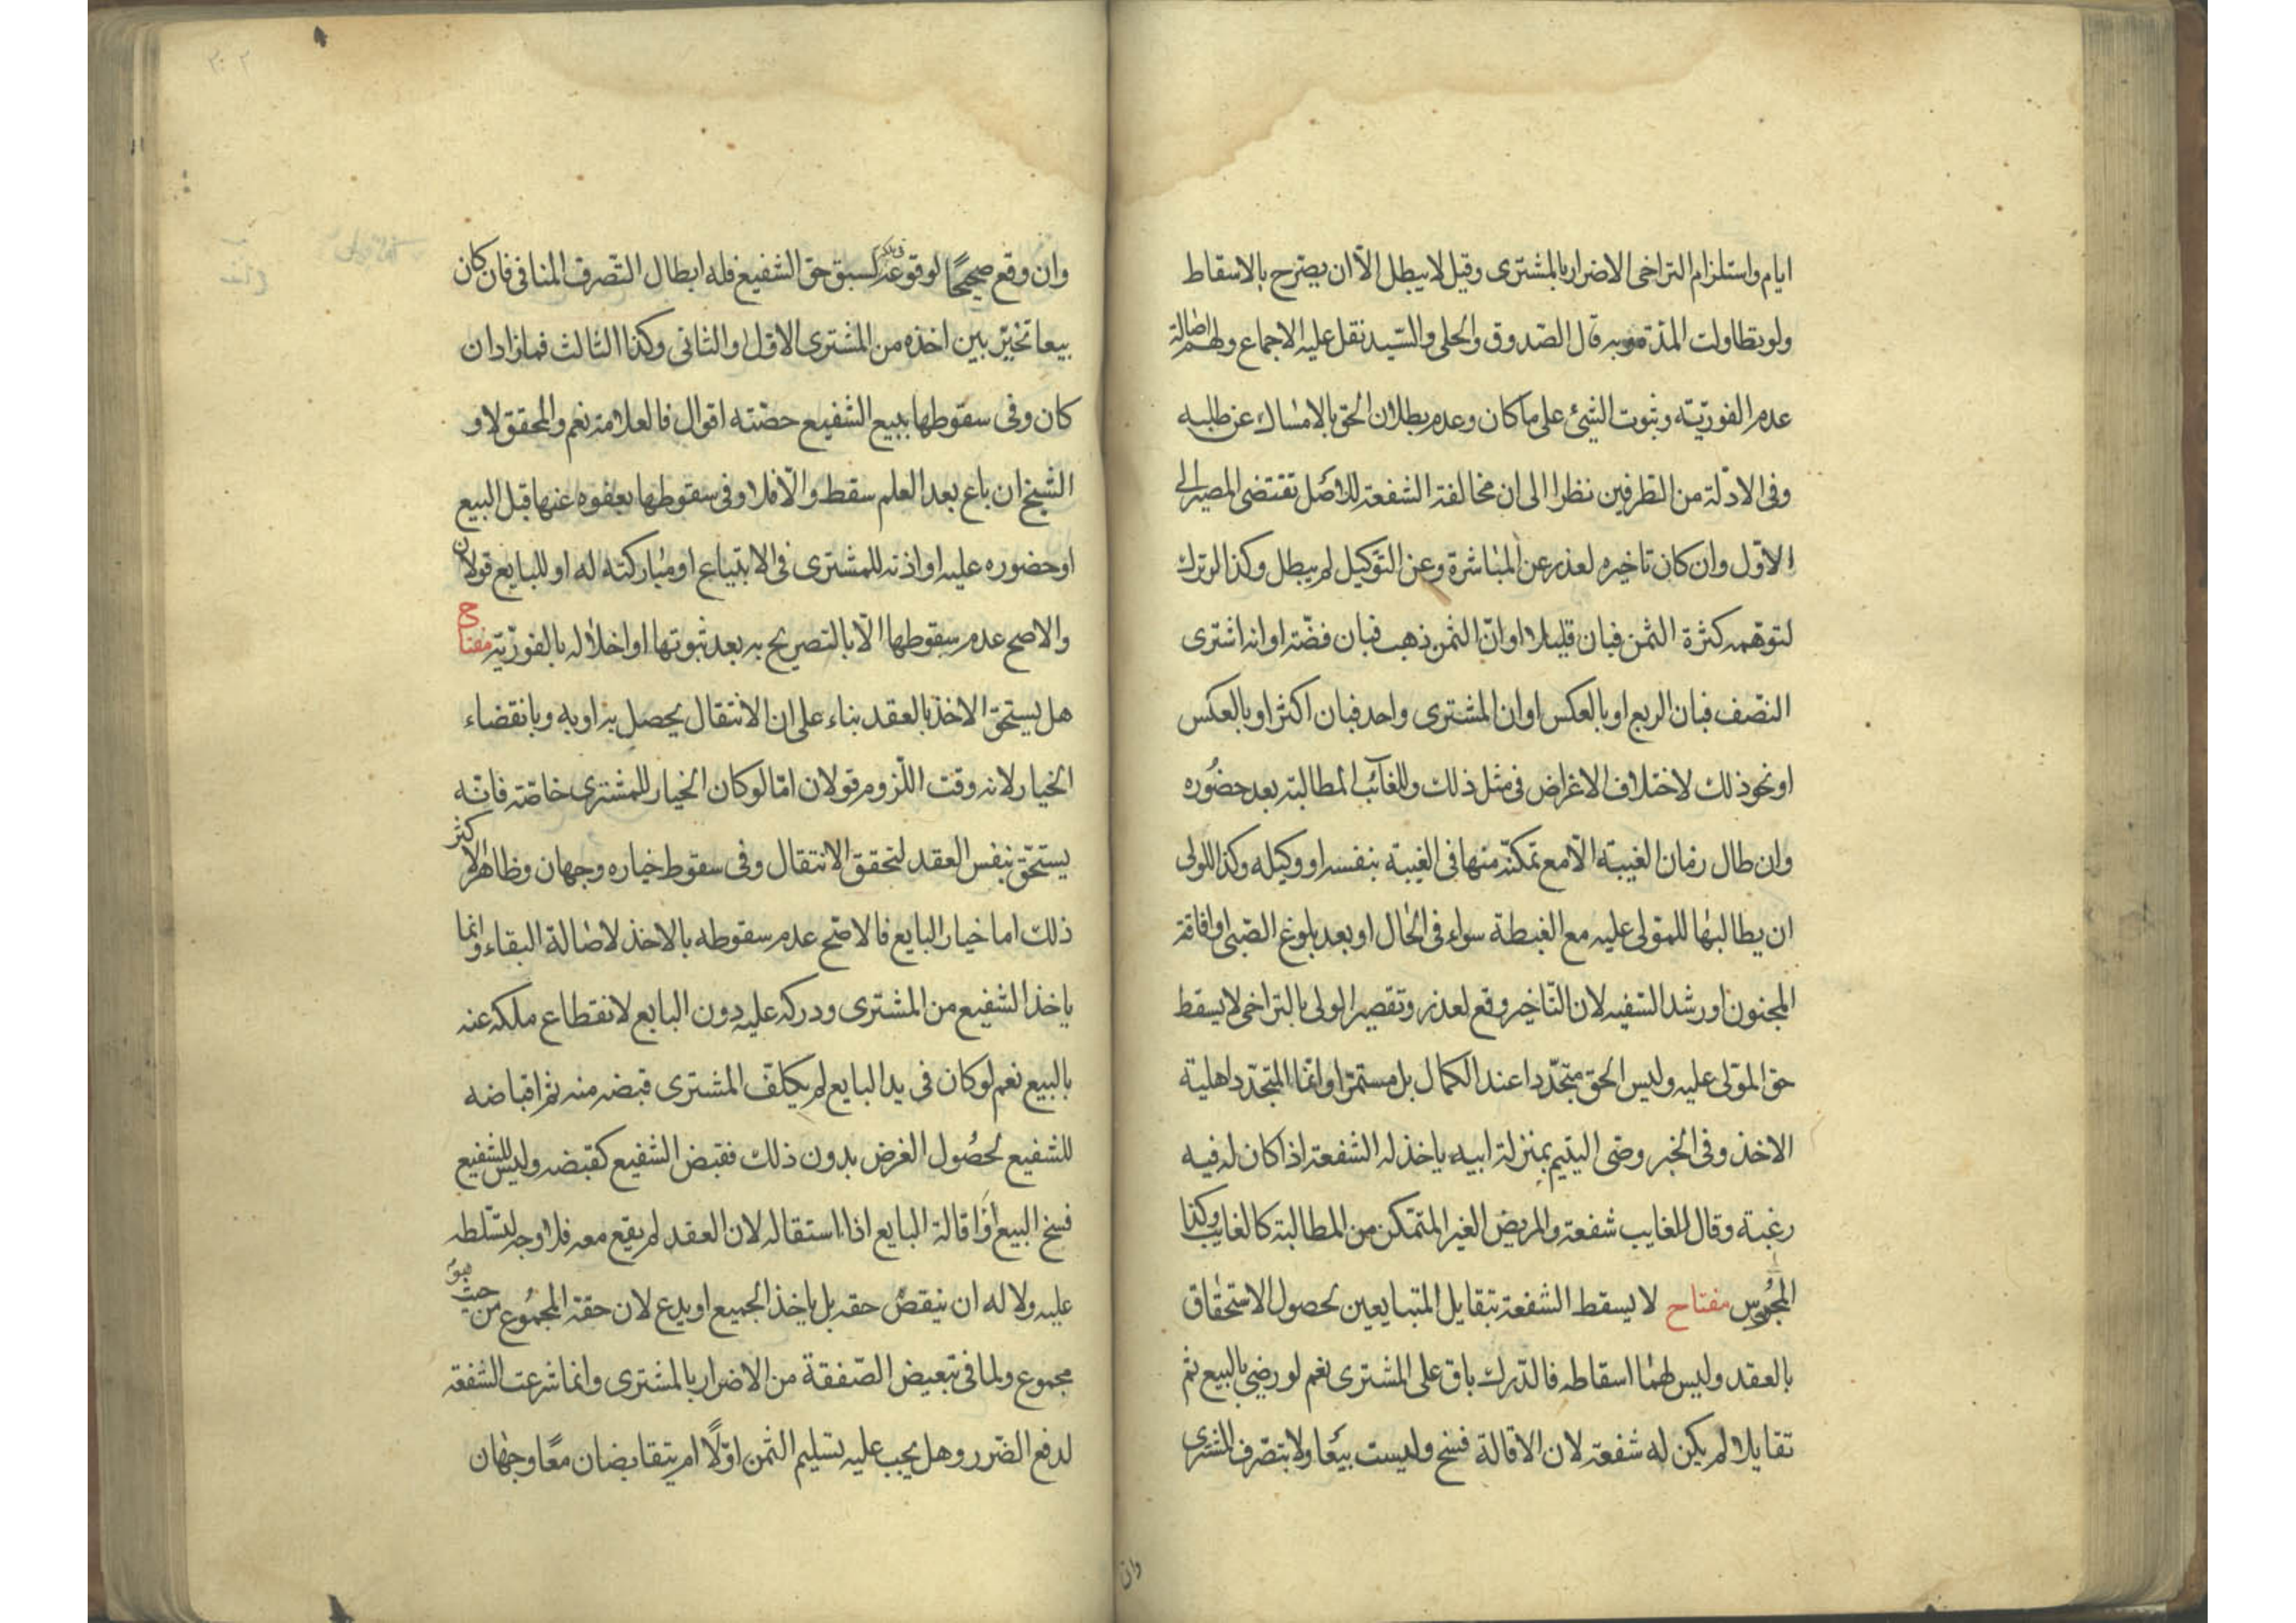 ايام واستلزام التراخى الاضرار بالمشترى وقيل لا يبطل الّا ان يصرح بالاسقاط
ولو تطاولت المدّة وبه قال الصّدوق والحلى والسّيد نقل عليه الاجماع ولهم اصالة
عدم الفوريّة وثبوت الشئ على ما كان وعدم بطلان الحق بالامساك عن طلبه
وفى الادلّة من الطرفين نظر الى ان مخالفة الشفعة للاصل تقتضى المصير الى
الاوّل وان كان تاخيره لعذر عن المباشرة وعن التوكيل لم يبطل وكذا لو ترك
لتوهّمه كثرة الثمن فبان قليلا او انّ الثمن ذهب فبان فضّة او انه اشترى
النصف فبان الربع او بالعكس او ان المشترى واحد فبان اكثر او بالعكس
او نحو ذلك لاختلاف الاغراض فى مثل ذلك وللغائب المطالبة بعد حضوره
وان طال زمان الغيبة الّا مع تمكنّه منها فى الغيبة بنفسه او وكيله وكذا للولى
ان يطالبها للمولى عليه مع الغبطة سواء فى الحال او بعد بلوغ الصّبى او افاقة
المجنون او رشد السّفيه لان التّاخير وقع لعذر وتقصير الولى بالتراخى لا يسقط
حق المولى عليه وليس الحق متجدّدا عند الكمال بل مستمرّا وانّما المتجدّد اهلية
الاخذ وفى الخبر وصّى اليتيم بمنزلة ابيه ياخذ له الشفعة اذا كان له فيه
رغبة وقال للغايب شفعة والمريض الغير المتمكّن من المطالبة كالغايب وكذا
المحبوس مفتاح لا يسقط الشفعة بتقايل المتبايعين لحصول الاستحقاق
بالعقد وليس لهما اسقاطه فالدّرك باق على المشترى نعم لو رضى بالبيع ثم
تقايلا لم يكن له شفعة لان الاقالة فسخ وليست بيعًا ولا بتصّرف المشترى
وان
وان وقع صحيحًا لوقوعه فى ملكه لسبق حق الشفيع فله ابطال التّصرف المنافى فان كان
بيعا تخيّر بين اخذه من المشترى الاوّل والثانى وكذا الثالث فما زاد ان
كان وفى سقوطها ببيع الشفيع حصّته اقوال فالعلامة نعم والمحقق لا و
الشيخ ان باع بعد العلم سقط والّا فلا وفى سقوطها بعفوه عنها قبل البيع
او حضوره عليه او اذنه للمشترى فى الابتياع او مباركته له او للبايع قولان
والاصح عدم سقوطها الّا بالتصريح به بعد ثبوتها او اخلاله بالفوريّة مفتاح
هل يستحق الاخذ بالعقد بناء على ان الانتقال يحصل به او به وبانقضاء
الخيار لانه وقت اللّزوم قولان امّا لو كان الخيار للمشترى خاصّة فانّه
يستحّق بنفس العقد لتحقق الانتقال وفى سقوط خياره وجهان وظاهر الاكثر
ذلك اما خيار البايع فالاصّح عدم سقوطه بالاخذ لاصالة البقاء وانما
ياخذ الشفيع من المشترى ودركه عليه دون البايع لانقطاع ملكه عنه
بالبيع نعم لو كان فى يد البايع لم يكلّف المشترى قبضه منه ثم اقباضه
للشفيع لحصول الغرض بدون ذلك فقبض الشفيع كقبضه وليس للشفيع
فسخ البيع او اقالة البايع اذا استقاله لان العقد لم يقع معه فلا وجه لتسّلطه
عليه ولا له ان ينقض حقه بل ياخذ الجميع او يدع لان حقه المجموع من حيث هو
مجموع ولما فى تبعيض الصّفقة من الاضرار بالمشترى وانما شرعت الشفعة
لدفع الضّرر وهل يجب عليه تسليم الثمن اوّلًا ام يتقابضان معًا وجهان